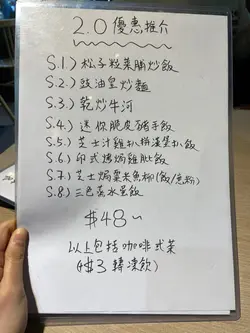 2.0優惠推介
S.1) 松子粒菜脯炒飯
S.2) 豉油皇炒麵
S.3) 乾炒牛河
S.4) 迷你脆皮豬手飯
S.5) 芝士汁雞扒拼漢堡扒飯
S.6) 印式烤焗雞肶飯
S.7) 芝士焗粟米魚柳(飯/意粉)
S.8) 三色蒸水蛋飯
$48~
以上包括咖啡或茶
(+$3轉凍飲)